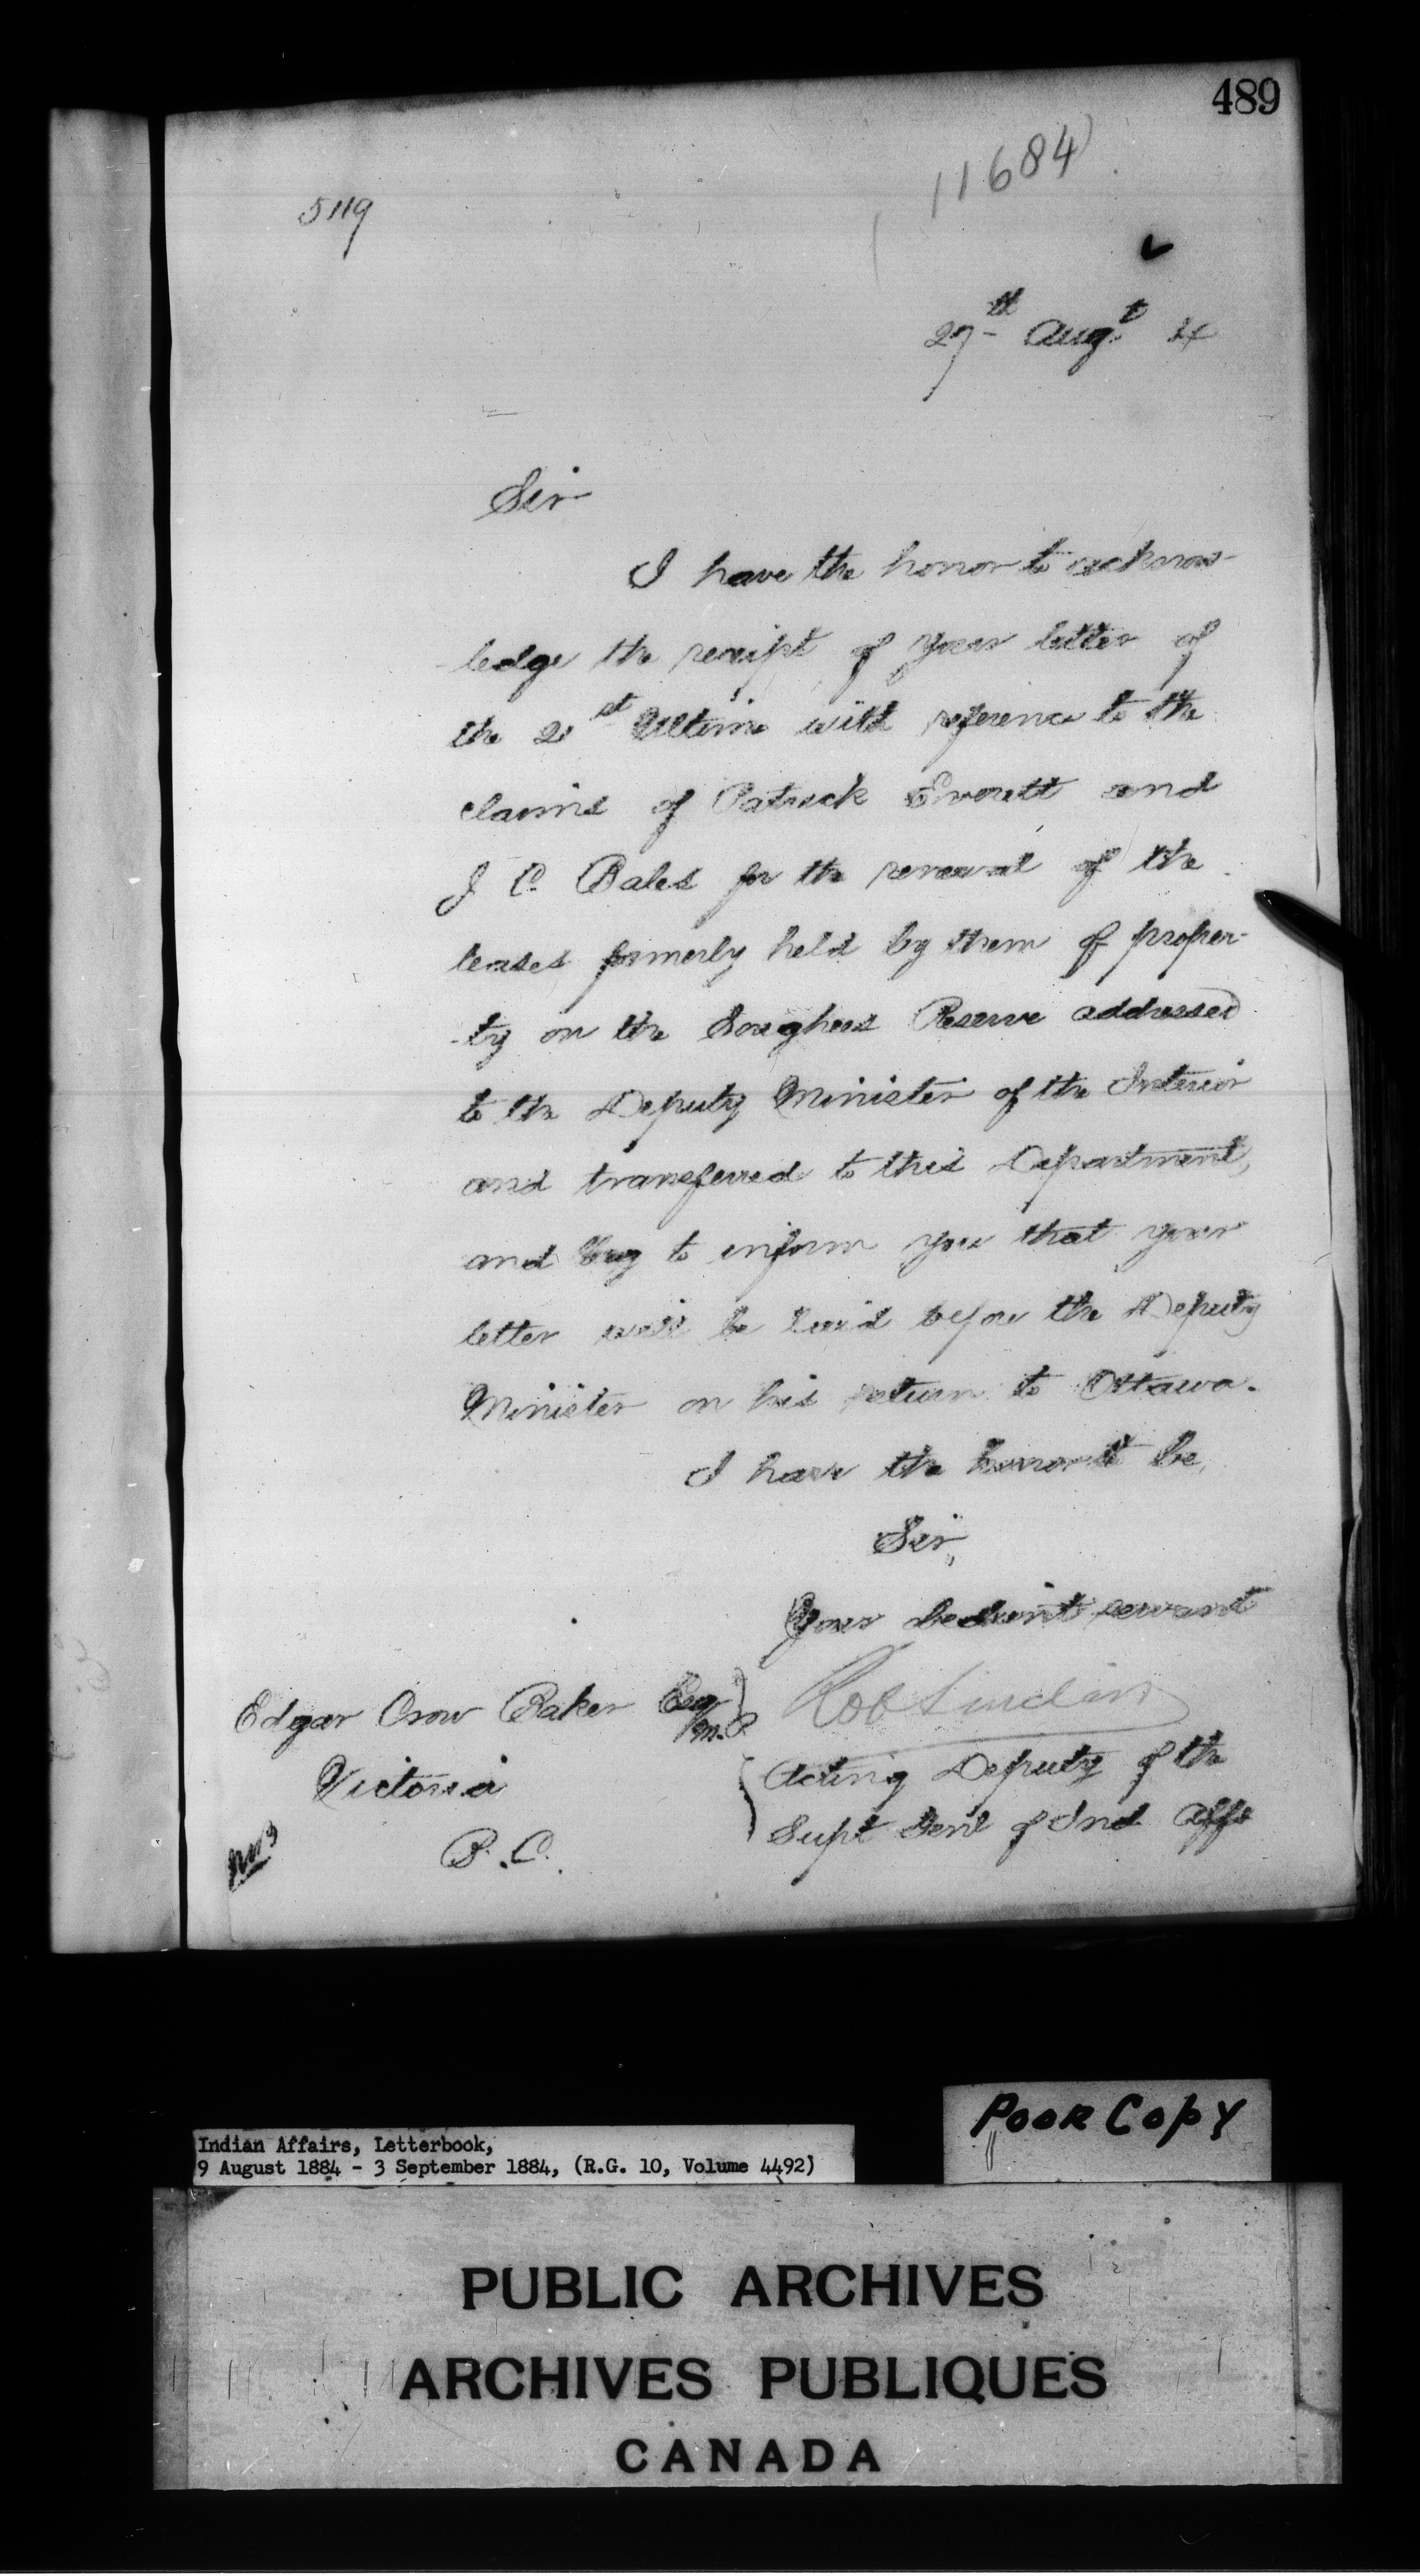 489
11684
5119
27th Augt 4
Sir
I have the honor to acknow-
ledge the receipt of your letter of
the 21st Ultimo with reference to the
claims of Patrick Everett and
J C Bales for the renewal of the
leases formerly held by them of proper-
-ty on the Songhees Reserve addressed
to the Deputy Minister of the Interior
and transferred to this Department,
and beg to inform you that your
letter will be laid before the Deputy
Minister on his return to Ottawa.
I have the honor to be,
Sir,
Your obedient servant
Rob Sinclair
Edgar Crow Baker Esq
M.P
Acting Deputy of the
Victoria
Supt Genl of Ind Affs
B.C.
Poor Copy
Indian Affairs, Letterbook,
9 August 1884 - 3 September 1884, (R.G. 10, Volume 4492)
PUBLIC ARCHIVES
ARCHIVES PUBLIQUES
CANADA